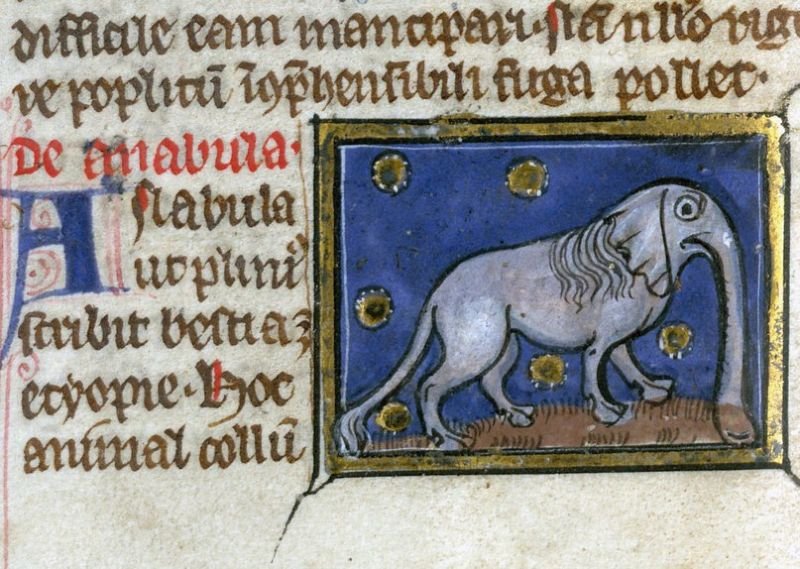 difficile eam mancipari·
re poplitū īcōp̄hensibili fuga pollet·
De anabula·
Anabula
ut pliniꝰ
scribit bestia
etyopie· Hoc
animal collū